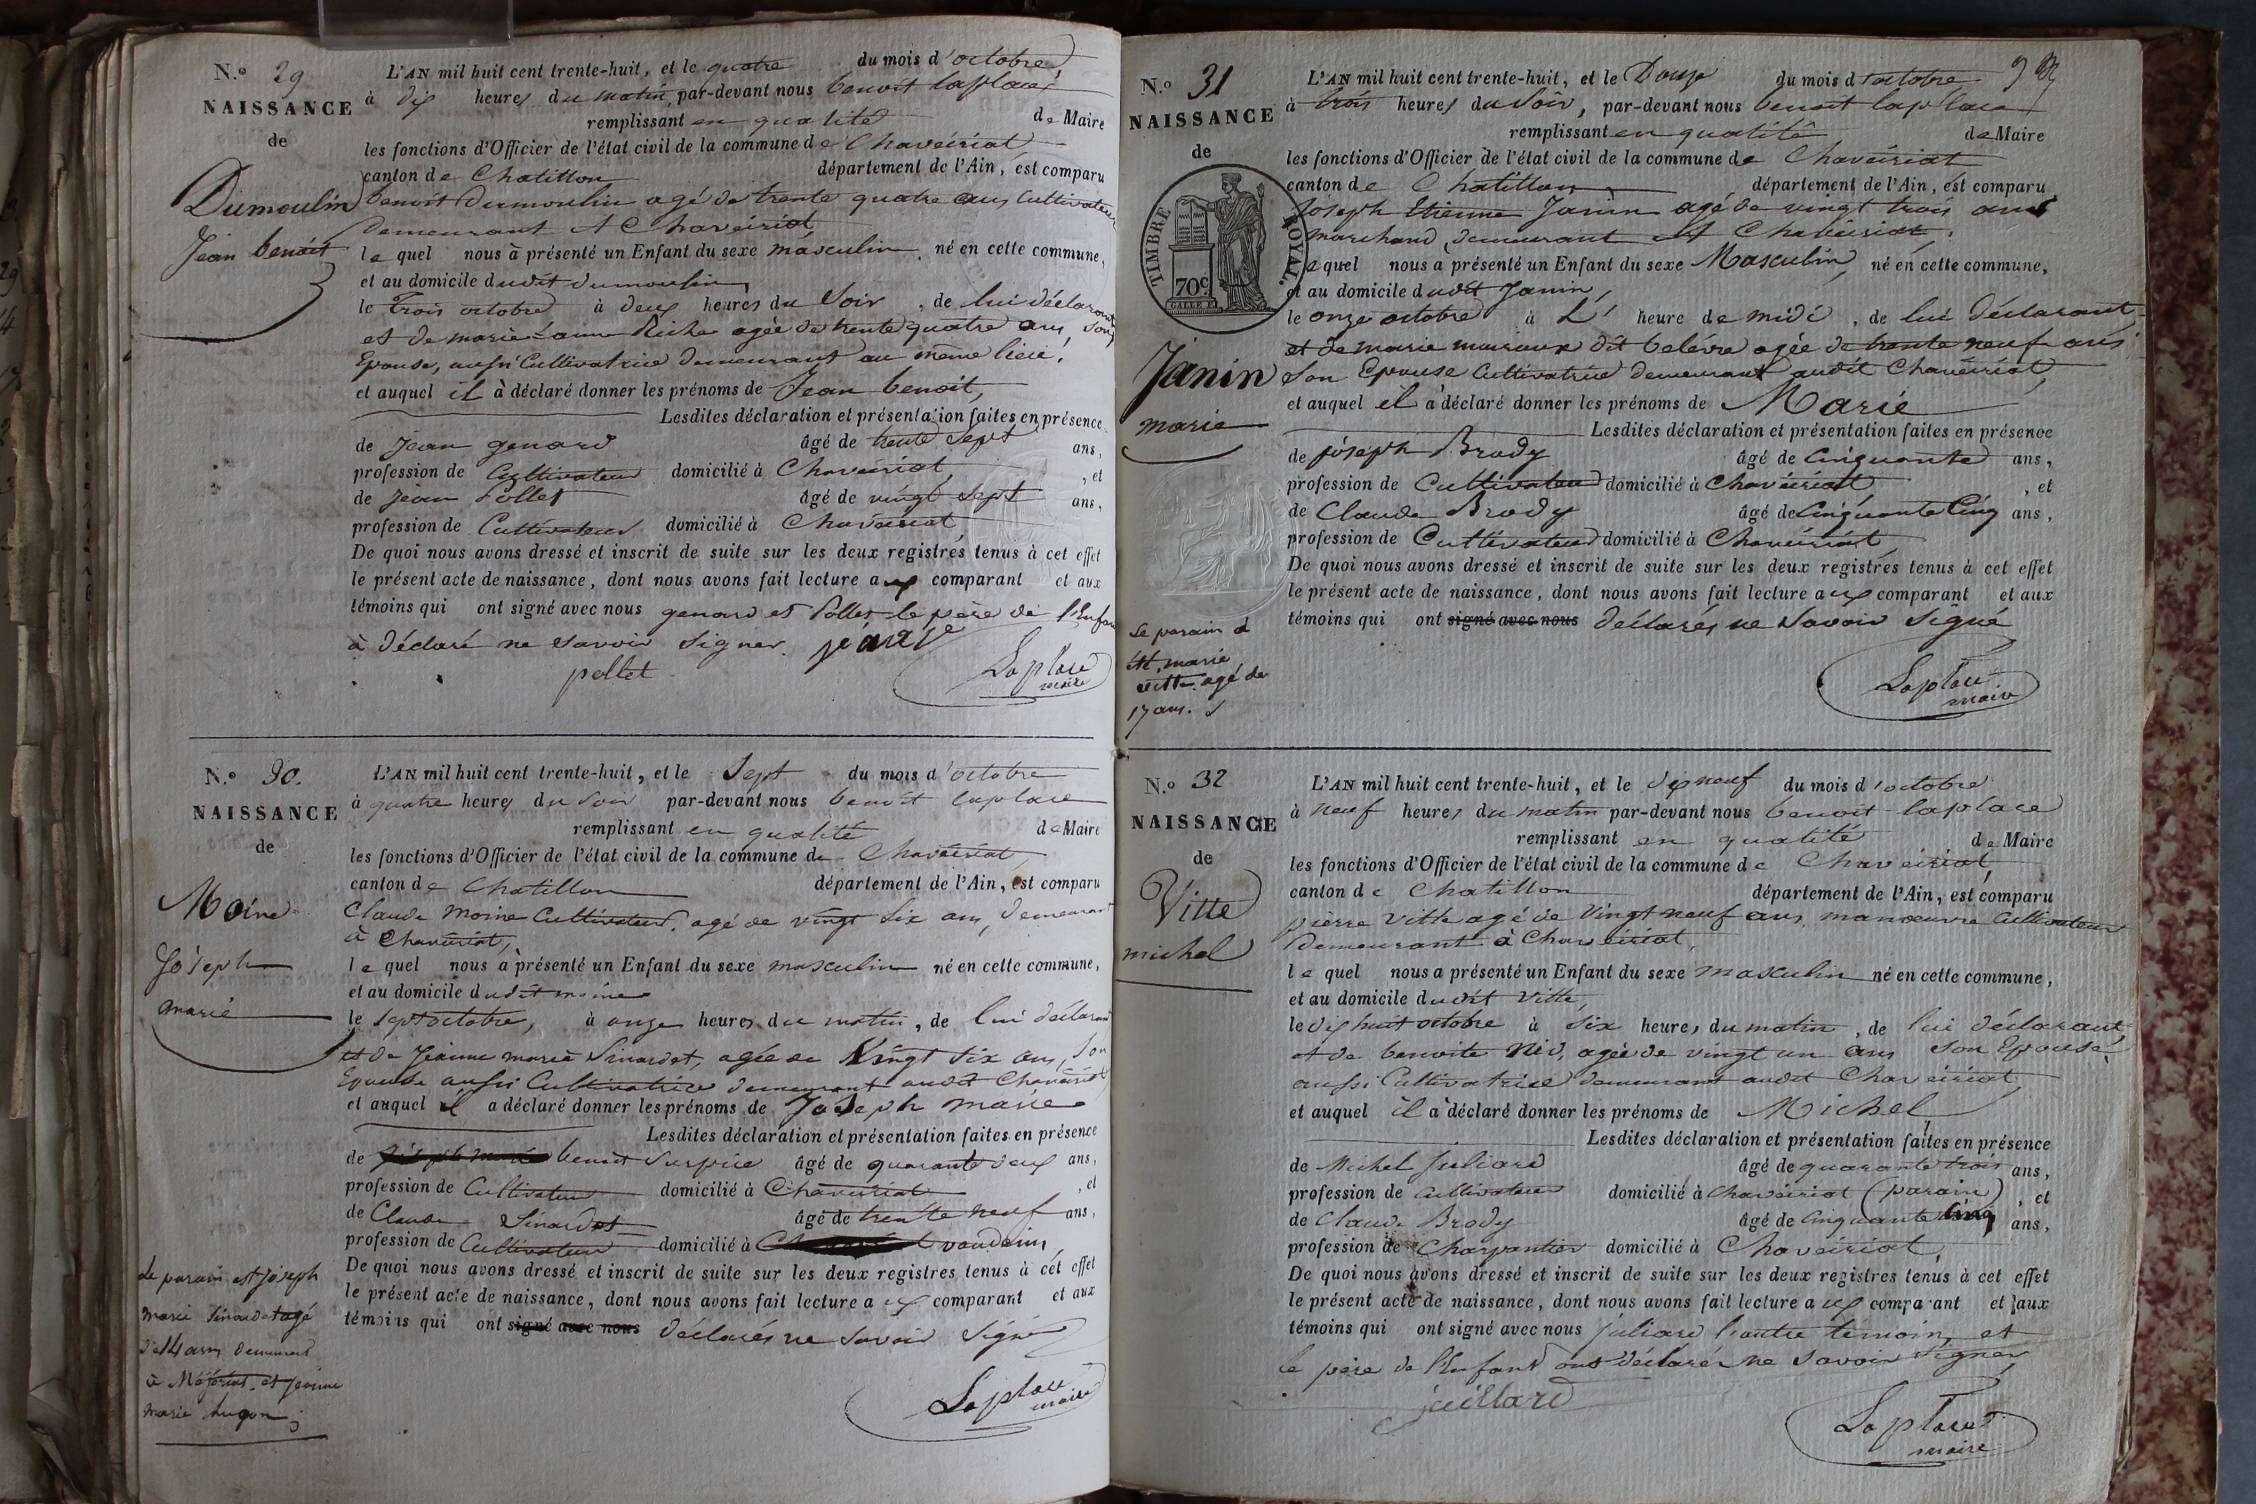 N.o 29
NAISSANCE
de
Dumoulin
Jean benoit
L'AN mil huit cent trente-huit, et le quatre du mois d'octobre,
à dix heures du matin, par-devant nous benoit laplace,
remplissant en qualité de Maire
les fonctions d'Officier de l'état civil de la commune de Chaveiriat
canton de Chatillon département de l'Ain, est comparu
benoit Dumoulin agé de trente quatre ans Cultivateur
demeurant A Chaveiriat
le quel nous à présenté un Enfant du sexe masculin, né en cette commune,
et au domicile dudit dumoulin,
le Trois octobre à deux heures du Soir, de lui déclarant
et de marie agée de trente quatre ans, son
Epouse, aussi Cultivatrice demeurant au même lieu,
et auquel il à déclaré donner les prénoms de Jean benoit,
Lesdites déclaration et présentation faites en présence
de Jean genard âgé de trente sept ans,
profession de Cultivateur domicilié à Chaveiriat, et
de Jean Pollet âgé de vingt sept ans,
profession de Cultivateur domicilié à Chaveiriat
De quoi nous avons dressé et inscrit de suite sur les deux registres tenus à cet effet
le présent acte de naissance, dont nous avons fait lecture aux comparant et aux
témoins qui ont signé avec nous genard et Pollet le père de l'Enfant
à déclaré ne savoir signer.
pollet
Laplace
maire
N.o 30.
NAISSANCE
de
Moine
Joseph
marie
L'AN mil huit cent trente-huit, et le Sept du mois d'octobre
à quatre heures du Soir par-devant nous benoit laplace
remplissant en qualité de Maire
les fonctions d'Officier de l'état civil de la commune de Chaveiriat
canton de Chatillon département de l'Ain, est comparu
Claude Moine Cultivateur, agé de vingt Six ans, demeurant
à Chaveiriat,
le quel nous à présenté un Enfant du sexe masculin né en cette commune,
et au domicile dudit moine
le sept octobre, à onze heures du matin, de lui déclarant
et de Jeanne marie Sinardet, agée de Vingt Six ans, Son
Epouse aussi Cultivatrice demeurant audit Chaveiriat
et auquel il a déclaré donner les prénoms de Joseph marie
Lesdites déclaration et présentation faites en présence
de benoit Surpice âgé de quarante deux ans,
profession de Cultivateur domicilié à Chaveiriat, et
de Claude Sinardet âgé de trente neuf ans,
profession de Cultivateur domicilié à vandeins
De quoi nous avons dressé et inscrit de suite sur les deux registres tenus à cet effet
le présent acte de naissance, dont nous avons fait lecture aux comparant et aux
témoins qui ont signé avec nous déclarés ne savoir Signé
Le parain est Joseph
marie Sinardet agé
de 14 ans demeurant
à Mézériat, et jeanne
marie
Laplace
maire
N.o 31
NAISSANCE
de
TIMBRE ROYAL.
70c.
Janin
marie
Le parain a
été marie
vitte agé de
17 ans.
L'AN mil huit cent trente-huit, et le Douze du mois d'octobre
à trois heures du Soir, par-devant nous benoit laplace
remplissant en qualité de Maire
les fonctions d'Officier de l'état civil de la commune de Chaveiriat
canton de Chatillon, département de l'Ain, est comparu
Joseph Etienne Janin agé de vingt trois ans
marchand demeurant A Chaveiriat,
le quel nous à présenté un Enfant du sexe Masculin, né en cette commune,
et au domicile dudit Janin,
le onze octobre à L' heure de midi, de lui déclarant
et de marie dit belévre agée de trente neuf ans
Son Epouse Cultivatrice demeurant audit Chaveiriat,
et auquel il à déclaré donner les prénoms de Marie
Lesdites déclaration et présentation faites en présence
de joseph Brody âgé de Cinquante ans,
profession de Cultivateur domicilié à Chaveiriat, et
de Claude Brody âgé de Cinquante Cinq ans,
profession de Cultivateur domicilié à Chaveiriat,
De quoi nous avons dressé et inscrit de suite sur les deux registres tenus à cet effet
le présent acte de naissance, dont nous avons fait lecture aux comparant et aux
témoins qui ont signé avec nous déclarés ne Savoir Signé
Laplace
maire
N.o 32
NAISSANCE
de
Vitte
michel
L'AN mil huit cent trente-huit, et le dix neuf du mois d'octobre
à neuf heures du matin par-devant nous benoit laplace
remplissant en qualité de Maire
les fonctions d'Officier de l'état civil de la commune de Chaveiriat,
canton de Chatillon département de l'Ain, est comparu
pierre vitte agé de Vingt neuf ans, manoeuvre Cultivateur
demeurant à Chaveiriat,
le quel nous a présenté un Enfant du sexe masculin né en cette commune,
et au domicile dudit vitte,
le dix huit octobre à Six heures du matin, de lui déclarant
et de benoite Nid, agée de vingt un ans son Epouse
aussi Cultivatrice demeurant audit Chaveiriat,
et auquel il à déclaré donner les prénoms de Michel
Lesdites déclaration et présentation faites en présence
de Michel Juliard âgé de quarante trois ans,
profession de Cultivateur domicilié à Chaveiriat (parain), et
de Claude Brody âgé de Cinquante cinq ans,
profession de Charpantier domicilié à Chaveiriat,
De quoi nous avons dressé et inscrit de suite sur les deux registres tenus à cet effet
le présent acte de naissance, dont nous avons fait lecture aux comparant et aux
témoins qui ont signé avec nous juliard l'autre témoin, et
le père de l'Enfant ont déclarés ne savoir signer
juillard
Laplace
maire